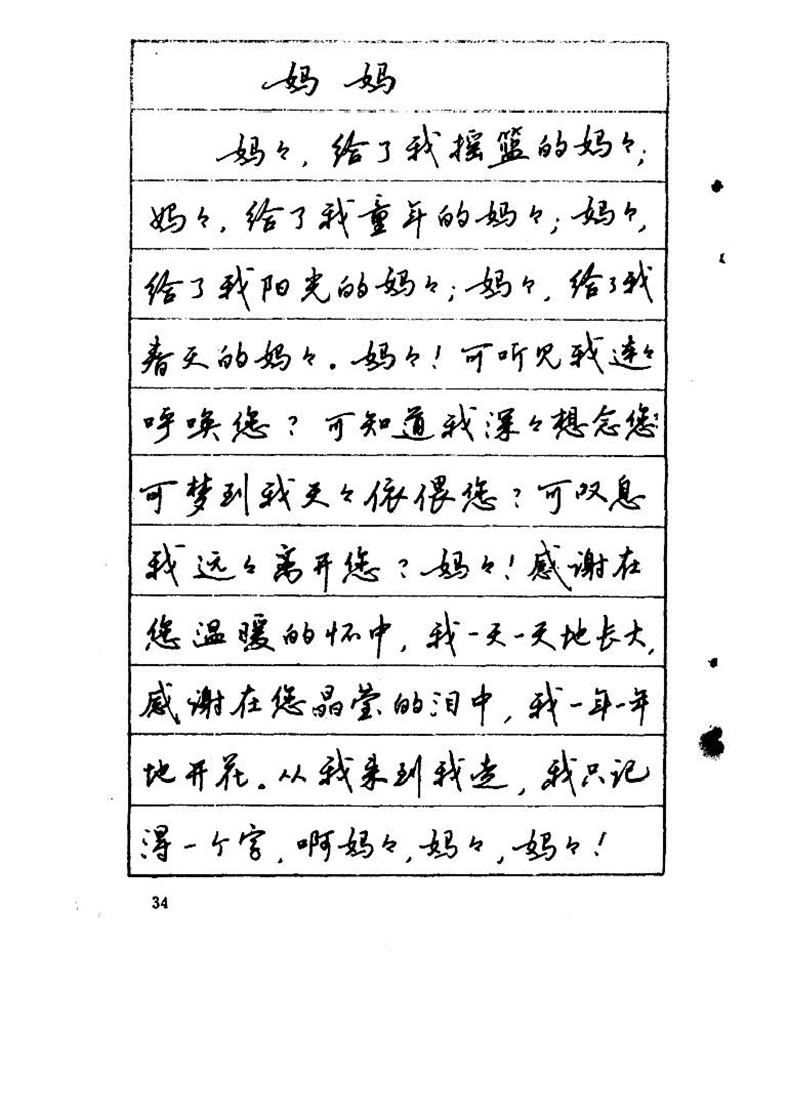 妈妈
妈々，给了我摇篮的妈々；
妈々，给了我童年的妈々；妈々，
给了我阳光的妈々；妈々，给了我
春天的妈々。妈々！可听见我连々
呼唤您？可知道我深々想念您？
可梦到我天々依偎您？可叹息
我远々离开您？妈々！感谢在
您温暖的怀中，我一天一天地长大，
感谢在您晶莹的泪中，我一年一年
地开花。从我来到我走，我只记
得一个字，啊妈々，妈々，妈々！
34